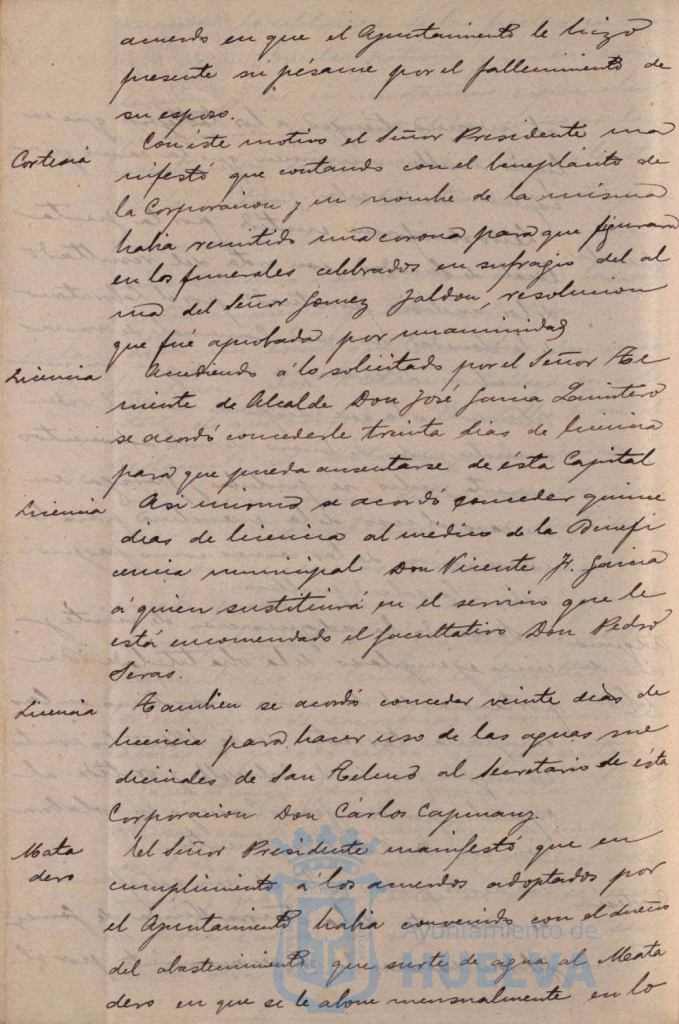 acuerdo en que el Ayuntamiento le hizo
presente su pésame por el fallecimiento de
su esposo.
Cortesia
Con éste motivo el Señor Presidente ma
nifestó que contando con el beneplácito de
la Corporacion y en nombre de la misma
habia remitido una corona para que figurara
en los funerales celebrados en sufragio del al
ma del Señor Gomez Jaldon, resolucion
que fué aprobada por unanimidad
Licencia
Accediendo á lo solicitado por el Señor Te
niente de Alcalde Don José Garcia Quintero
se acordó concederle treinta dias de licencia
para que pueda ausentarse de ésta Capital
Licencia
Asi mismo se acordó conceder quince
dias de licencia al médico de la Benefi
cencia municipal Don Vicente F. Garcia
á quien sustituirá en el servicio que le
está encomendado el facultativo Don Pedro
Seras.
Licencia
Tambien se acordó conceder veinte dias de
licencia para hacer uso de las aguas me
dicinales de San Telmo al Secretario de ésta
Corporacion Don Cárlos Capmany.
Mata
dero
El Señor Presidente manifestó que en
cumplimiento á los acuerdos adoptados por
el Ayuntamiento habia convenido con el dueño
del abastecimiento que surte de agua al Mata
dero en que se le abone mensualmente en lo
Ayuntamiento de
HUELVA